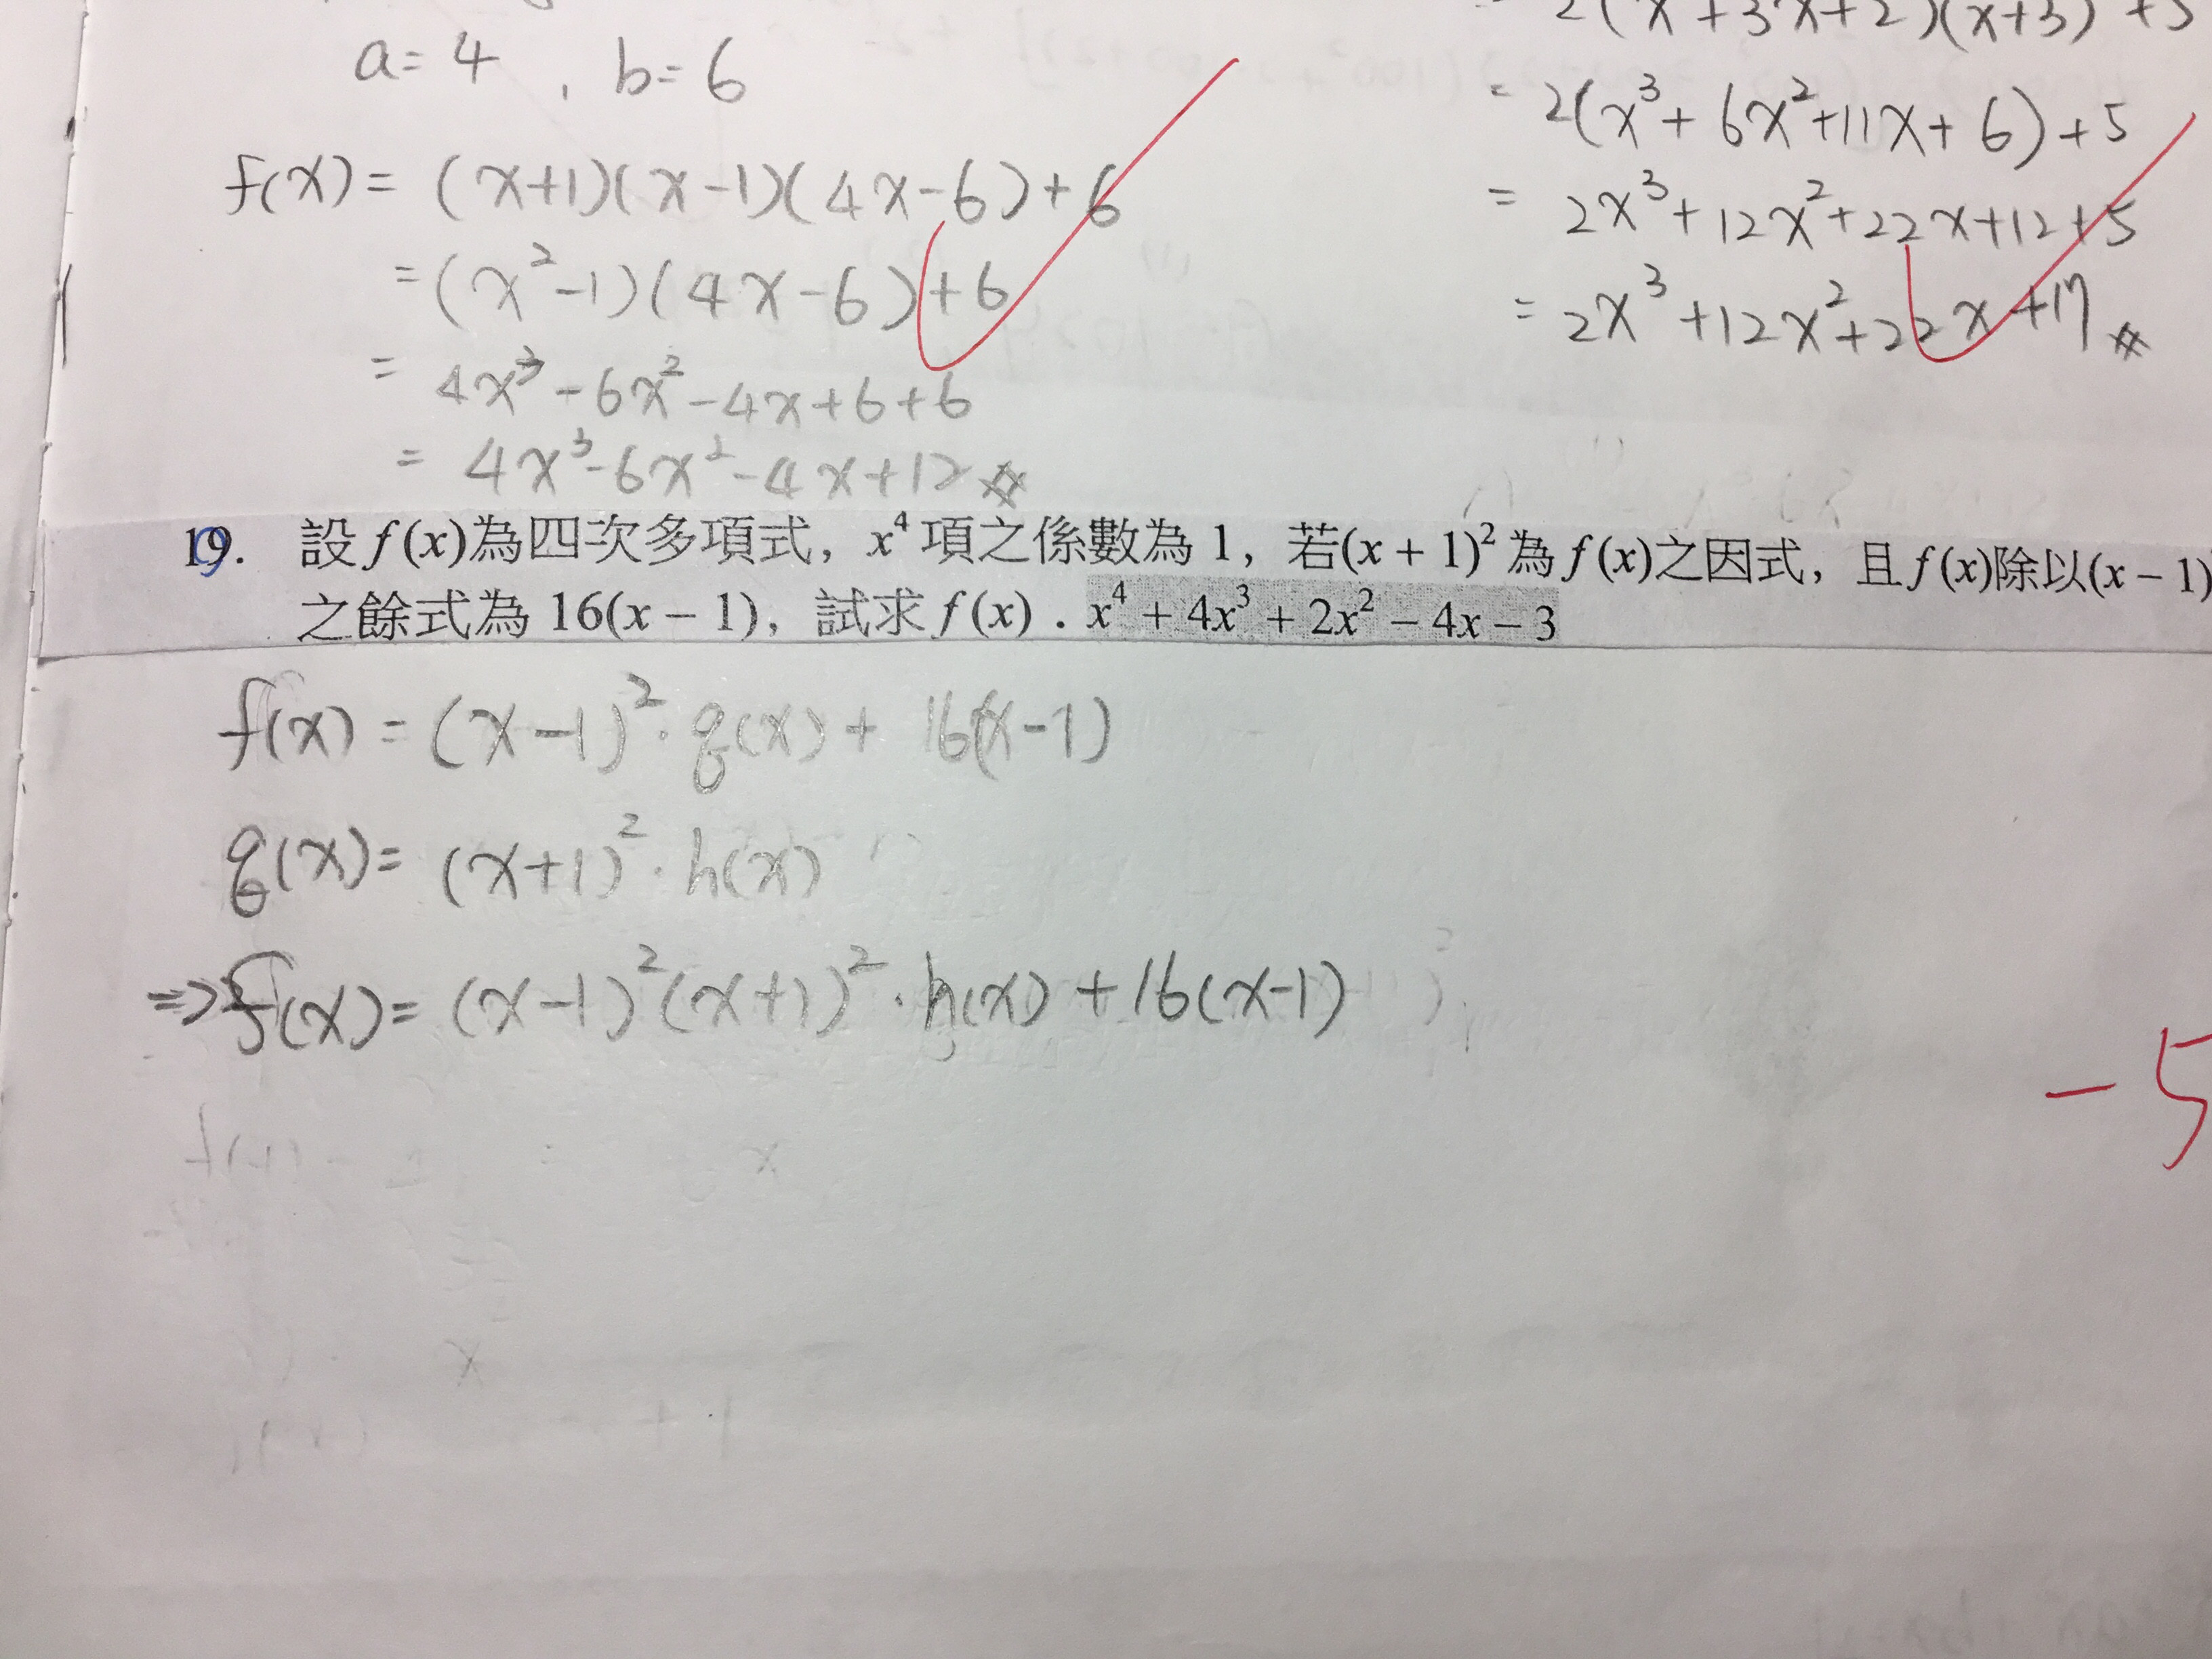 a=4 , b=6
f(x)= (x+1)(x-1)(4x-6)+6
=(x²-1)(4x-6)+6
= 4x³-6x²-4x+6+6
= 4x³-6x²-4x+12 #
2(x²+3x+2)(x+3)+5
= 2(x³+6x²+11x+6)+5
= 2x³+12x²+22x+12+5
= 2x³+12x²+22x+17 #
19. 設 f(x)為四次多項式，x⁴ 項之係數為 1，若(x + 1)² 為 f(x)之因式，且 f(x)除以(x – 1)
之餘式為 16(x – 1)，試求 f(x)．x⁴ + 4x³ + 2x² – 4x – 3
f(x) = (x-1)²·q(x)+ 16(x-1)
q(x)= (x+1)²·h(x)
⇒f(x)= (x-1)²(x+1)²·h(x)+16(x-1)
-5